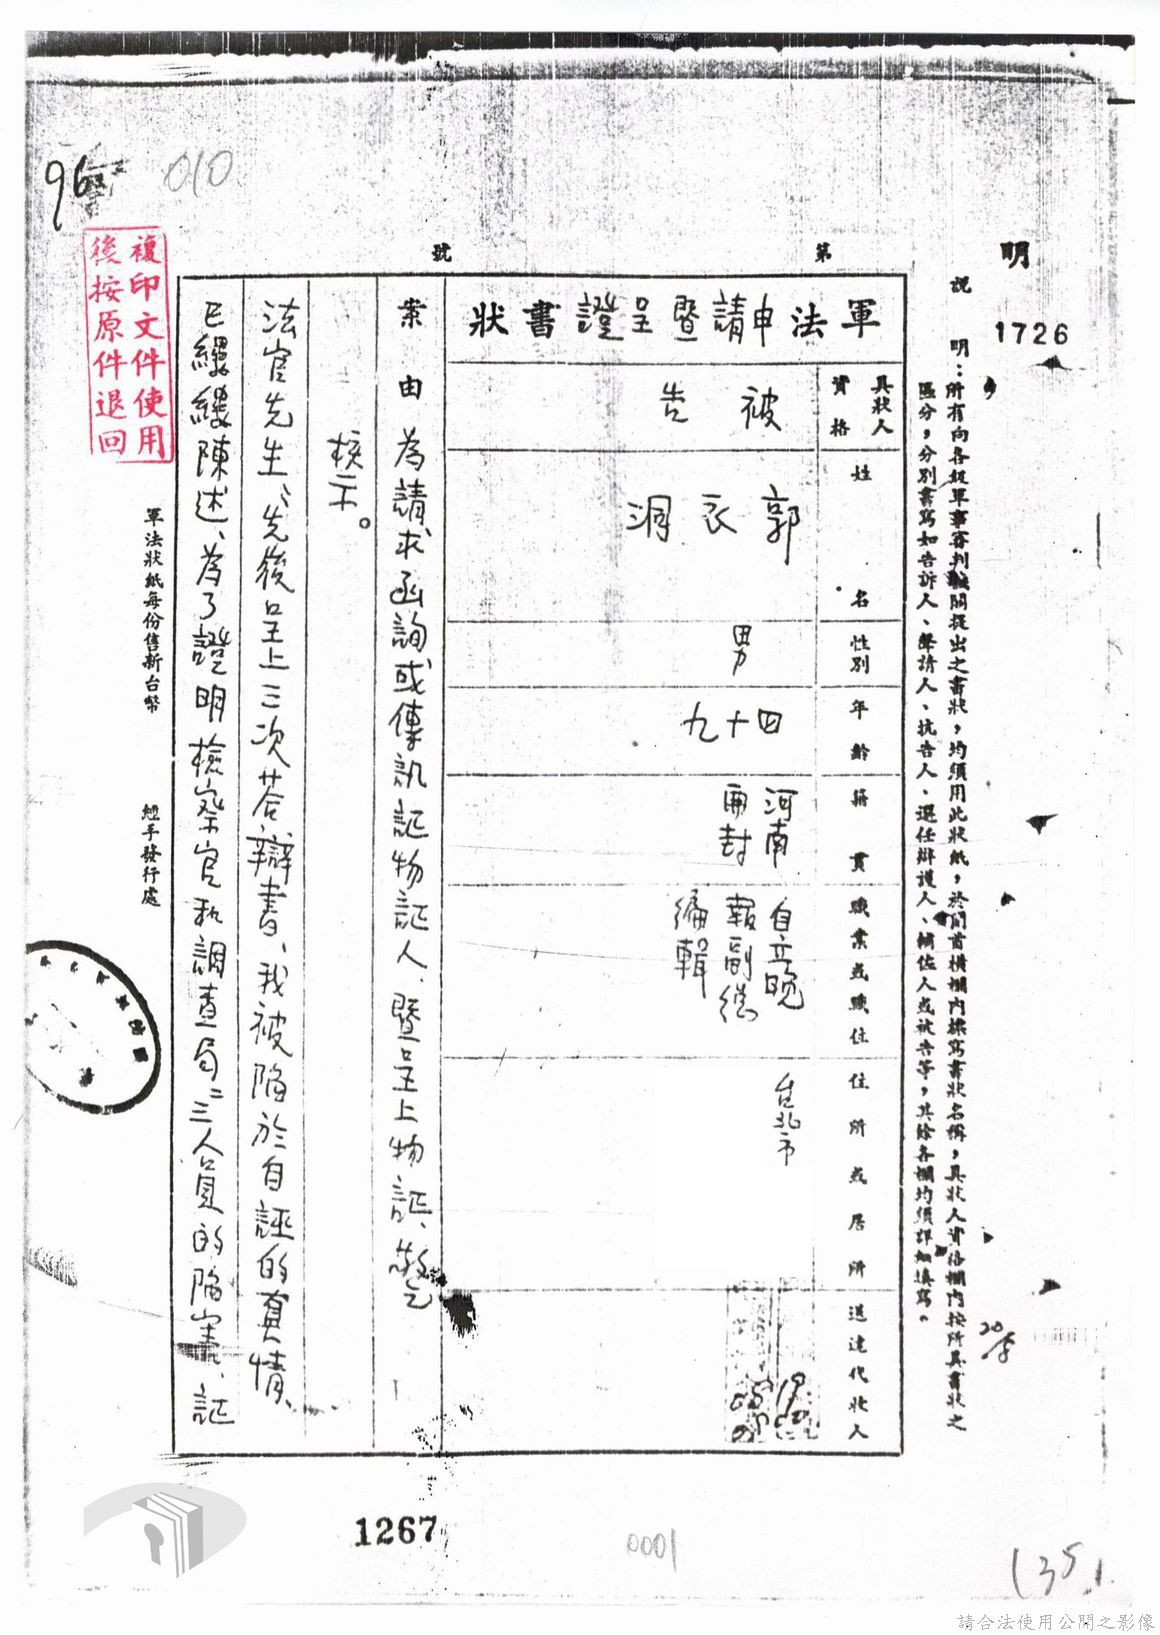 96
010
複印文件使用
後按原件退回
明
說　明：所有向各級軍事審判機關提出之書狀，均須用此狀紙，於開首橫欄內標寫書狀名稱，具狀人資格欄內按所具書狀之
區分，分別書寫如告訴人、聲請人、抗告人、選任辯護人、輔佐人或被告等，其餘各欄均須詳細填寫。
1726
第　號
軍法申請暨呈證書狀
具狀人資格
被告
姓名
郭衣洞
性別
男
年齡
四十九
籍貫
河南開封
職業或職位
自立晚報副總編輯
住所或居所
台北市
送達代收人
案由　為請求函詢或傳訊証物証人、暨呈上物証、敬乞
核示。
法官先生、先後呈上三次荅辯書、我被陷於自誣的真情、
已縷縷陳述、為了證明檢察官和調查局二三人員的陷害、証
軍法狀紙每份售新台幣
經手發行處
1267
0001
135
請合法使用公開之影像